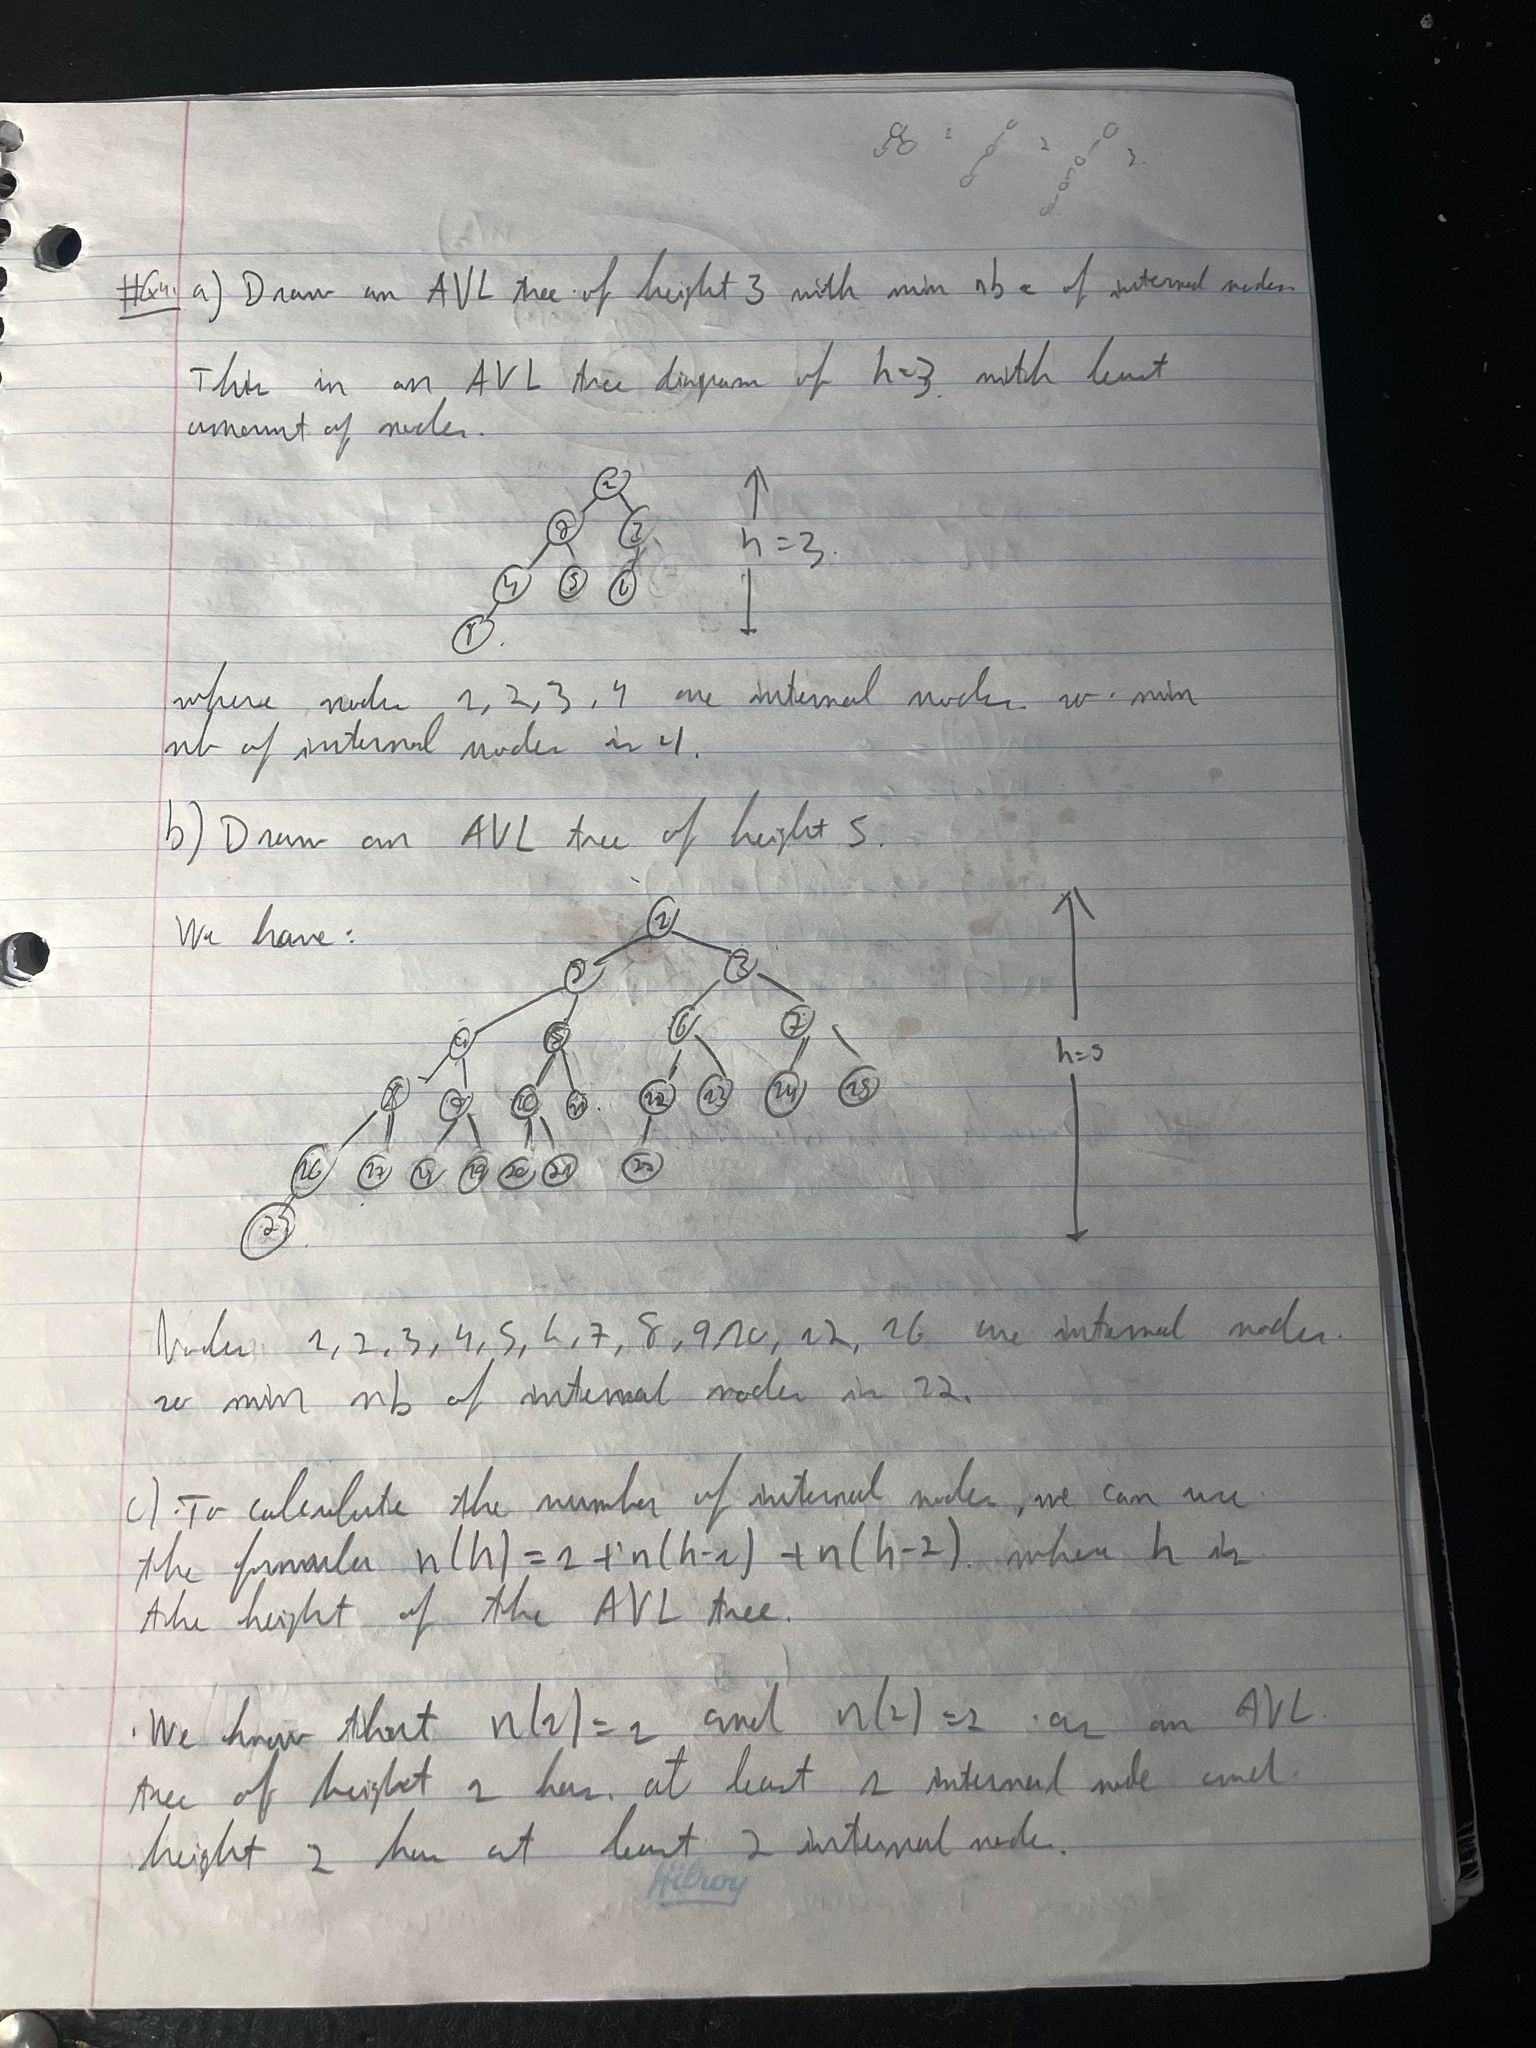 2 2 3
#Q4. a) Draw an AVL tree of height 3 with min nb of internal nodes
This is an AVL tree diagram of h=3 with least
amount of nodes.
1
2 3
h=3.
4 5 6
8
where nodes 1, 2, 3, 4 are internal nodes so min
nb of internal nodes is 4.
b) Draw an AVL tree of height 5.
We have:
1
2 3
4 5 6 7
h=5
8 9 10 11 12 13 14 15
16 17 18 19 20 21 22
23
Nodes 1, 2, 3, 4, 5, 6, 7, 8, 9, 10, 12, 16 are internal nodes.
so min nb of internal nodes is 12.
c) To calculate the number of internal nodes, we can use
the formula n(h) = 1 + n(h-1) + n(h-2). where h is
the height of the AVL tree.
. We know that n(1) = 1 and n(2) = 2 as an AVL
tree of height 1 has at least 1 internal node and
height 2 has at least 2 internal nodes.
Hilroy